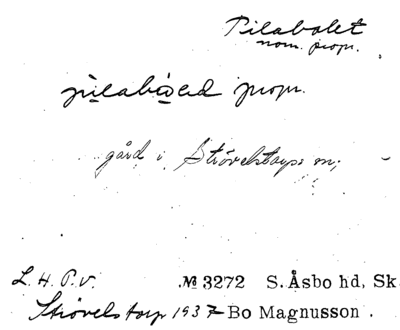 Pilabolet
nom. propr.
propr.
gård i Strövelstorps m;
L. H. P. v. № 3272 S. Åsbo hd, Sk.
Strövelstorp 1937 Bo Magnusson.